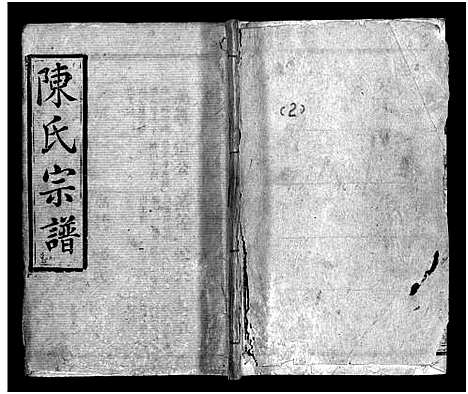 陳氏宗譜
(2)